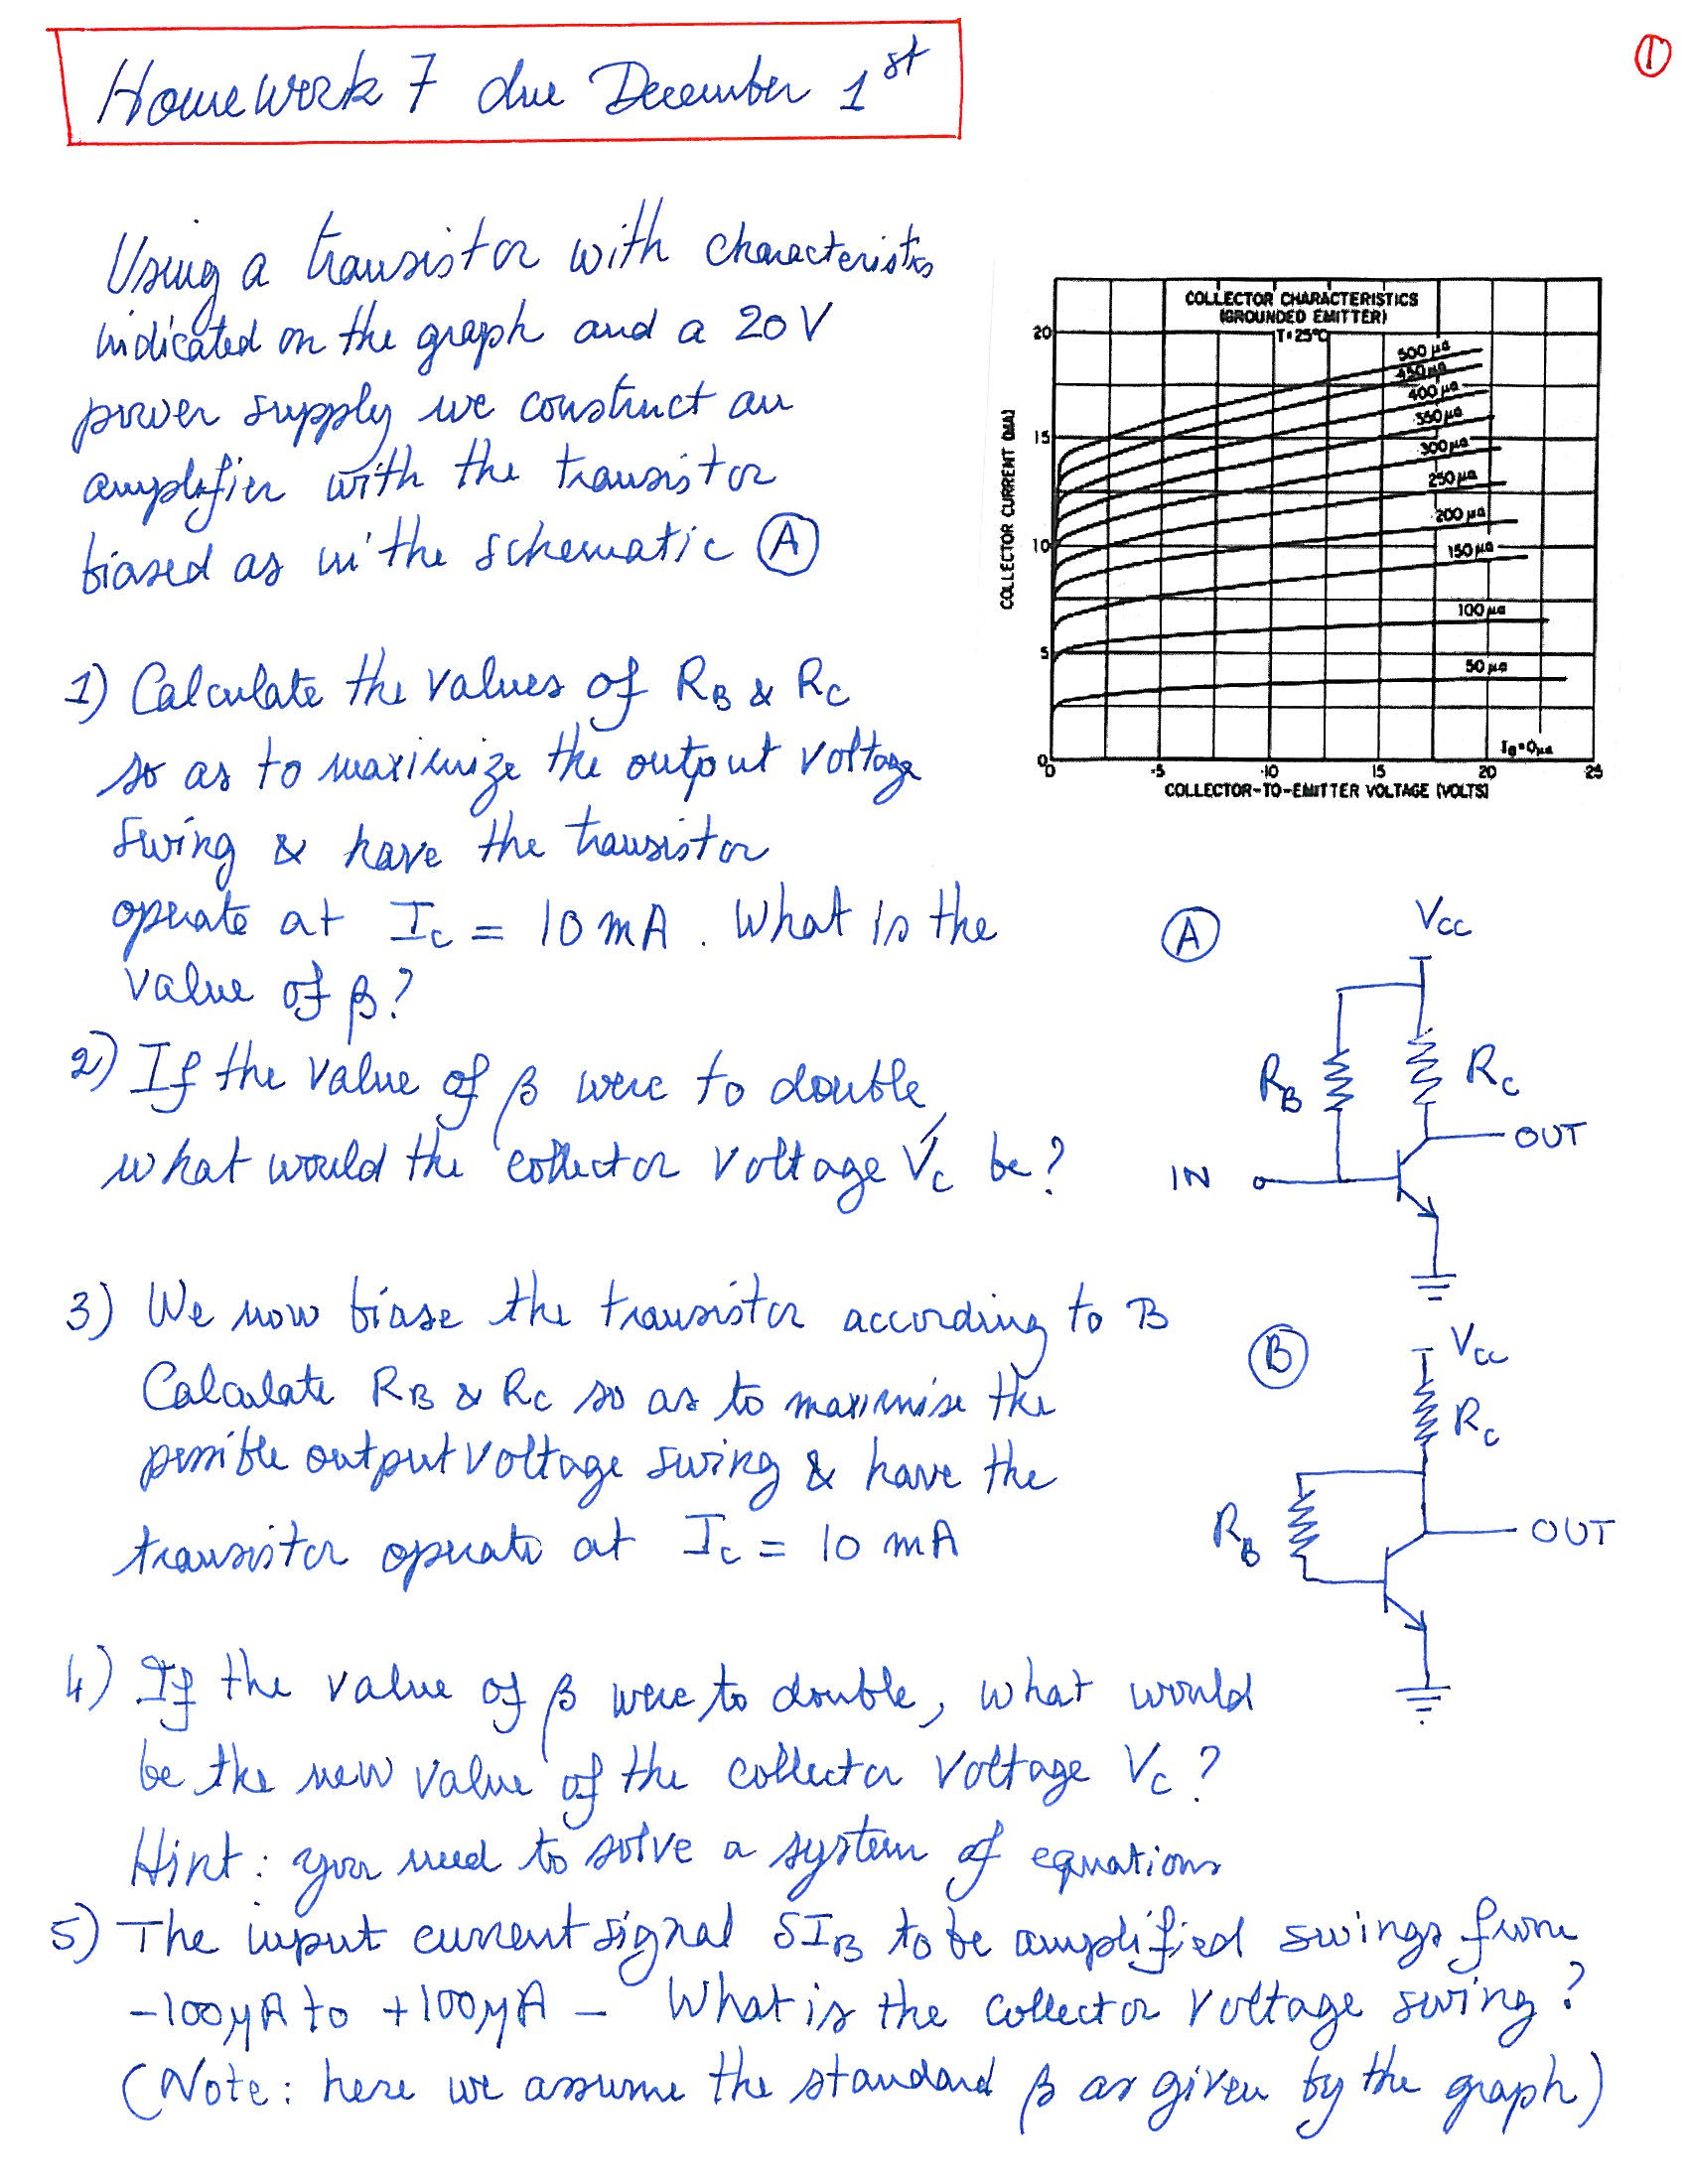 Homework 7 due December 1st
1
Using a transistor with characteristics
indicated on the graph and a 20V
power supply we construct an
amplifier with the transistor
biased as in the schematic A
COLLECTOR CHARACTERISTICS
(GROUNDED EMITTER)
T=25°C
500 μa
450 μa
400 μa
350 μa
300 μa
250 μa
200 μa
150 μa
100 μa
50 μa
IB=0μa
COLLECTOR CURRENT (MA)
20
15
10
5
0
0 5 10 15 20 25
COLLECTOR-TO-EMITTER VOLTAGE (VOLTS)
1) Calculate the values of RB & RC
so as to maximize the output voltage
swing & have the transistor
operate at Ic = 10 mA. What is the
value of β?
2) If the value of β were to double,
what would the collector voltage Vc be?
A
Vcc
RB
Rc
OUT
IN
3) We now biase the transistor according to B
Calculate RB & Rc so as to maximise the
possible output voltage swing & have the
transistor operate at Ic = 10 mA
B
Vcc
Rc
RB
OUT
4) If the value of β were to double, what would
be the new value of the collector voltage Vc?
Hint: you need to solve a system of equations
5) The input current signal δIB to be amplified swings from
-100μA to +100μA - What is the collector voltage swing?
(Note: here we assume the standard β as given by the graph)